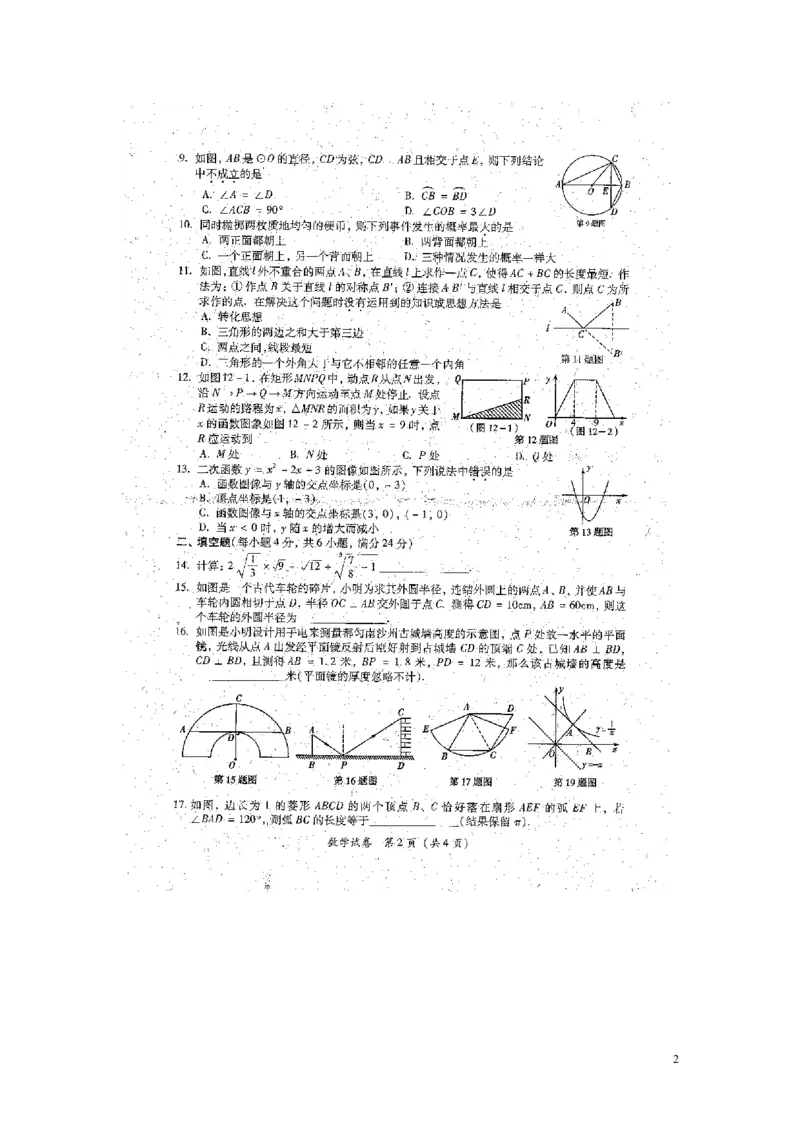 9. 如图, AB是⊙O的直径, CD为弦, CD AB且相交于点E, 则下列结论
中不成立的是
A. ∠A = ∠D
B. CB = BD
C. ∠ACB = 90°
D. ∠COB = 3∠D
C
A O E B
D
第9题图
10. 同时抛掷两枚质地均匀的硬币, 则下列事件发生的概率最大的是
A. 两正面都朝上
B. 两背面都朝上
C. 一个正面朝上, 另一个背面朝上
D. 三种情况发生的概率一样大
11. 如图,直线l外不重合的两点A、B, 在直线l上求作一点C, 使得AC + BC的长度最短. 作
法为: ①作点B关于直线l的对称点B'; ②连接AB'与直线l相交于点C. 则点C为所
求作的点. 在解决这个问题时没有运用到的知识或思想方法是
A. 转化思想
B. 三角形的两边之和大于第三边
C. 两点之间,线段最短
D. 三角形的一个外角大于与它不相邻的任意一个内角
A B
l C
B'
第11题图
12. 如图12－1, 在矩形MNPQ中, 动点R从点N出发,
沿N→P→Q→M方向运动至点M处停止. 设点
R运动的路程为x, △MNR的面积为y, 如果y关于
x的函数图象如图12－2所示, 则当x = 9时, 点
R应运动到
A. M处
B. N处
C. P处
D. Q处
Q P
R
M N
(图12－1)
y
O 4 9 x
(图12－2)
第12题图
13. 二次函数y = x² － 2x － 3的图像如图所示, 下列说法中错误的是
A. 函数图像与y轴的交点坐标是(0, －3)
B. 顶点坐标是(1, －3)
C. 函数图像与x轴的交点坐标是(3, 0), (－1, 0)
D. 当x < 0时, y随x的增大而减小
y
O x
第13题图
二、填空题(每小题4分, 共6小题, 满分24分)
14. 计算: 2√(1/3) × √9 － √12 + ³√(7/8 － 1)
15. 如图是一个古代车轮的碎片, 小明为求其外圆半径, 连结外圆上的两点A、B, 并使AB与
车轮内圆相切于点D, 半径OC⊥AB交外圆于点C. 测得CD = 10cm, AB = 60cm, 则这
个车轮的外圆半径为 .
16. 如图是小明设计用手电来测量都匀南沙州古城墙高度的示意图, 点P处放一水平的平面
镜, 光线从点A出发经平面镜反射后刚好射到古城墙CD的顶端C处, 已知AB⊥BD,
CD⊥BD, 且测得AB = 1.2米, BP = 1.8米, PD = 12米, 那么该古城墙的高度是
米(平面镜的厚度忽略不计).
C
A D B
O
第15题图
A C
B P D
第16题图
A D
E F
B C
第17题图
y
A y=1/x
O B x
y=-x
第19题图
17. 如图, 边长为1的菱形ABCD的两个顶点B、C恰好落在扇形AEF的弧EF上, 若
∠BAD = 120°, 则弧BC的长度等于 (结果保留π).
数学试卷 第2页 (共4页)
2